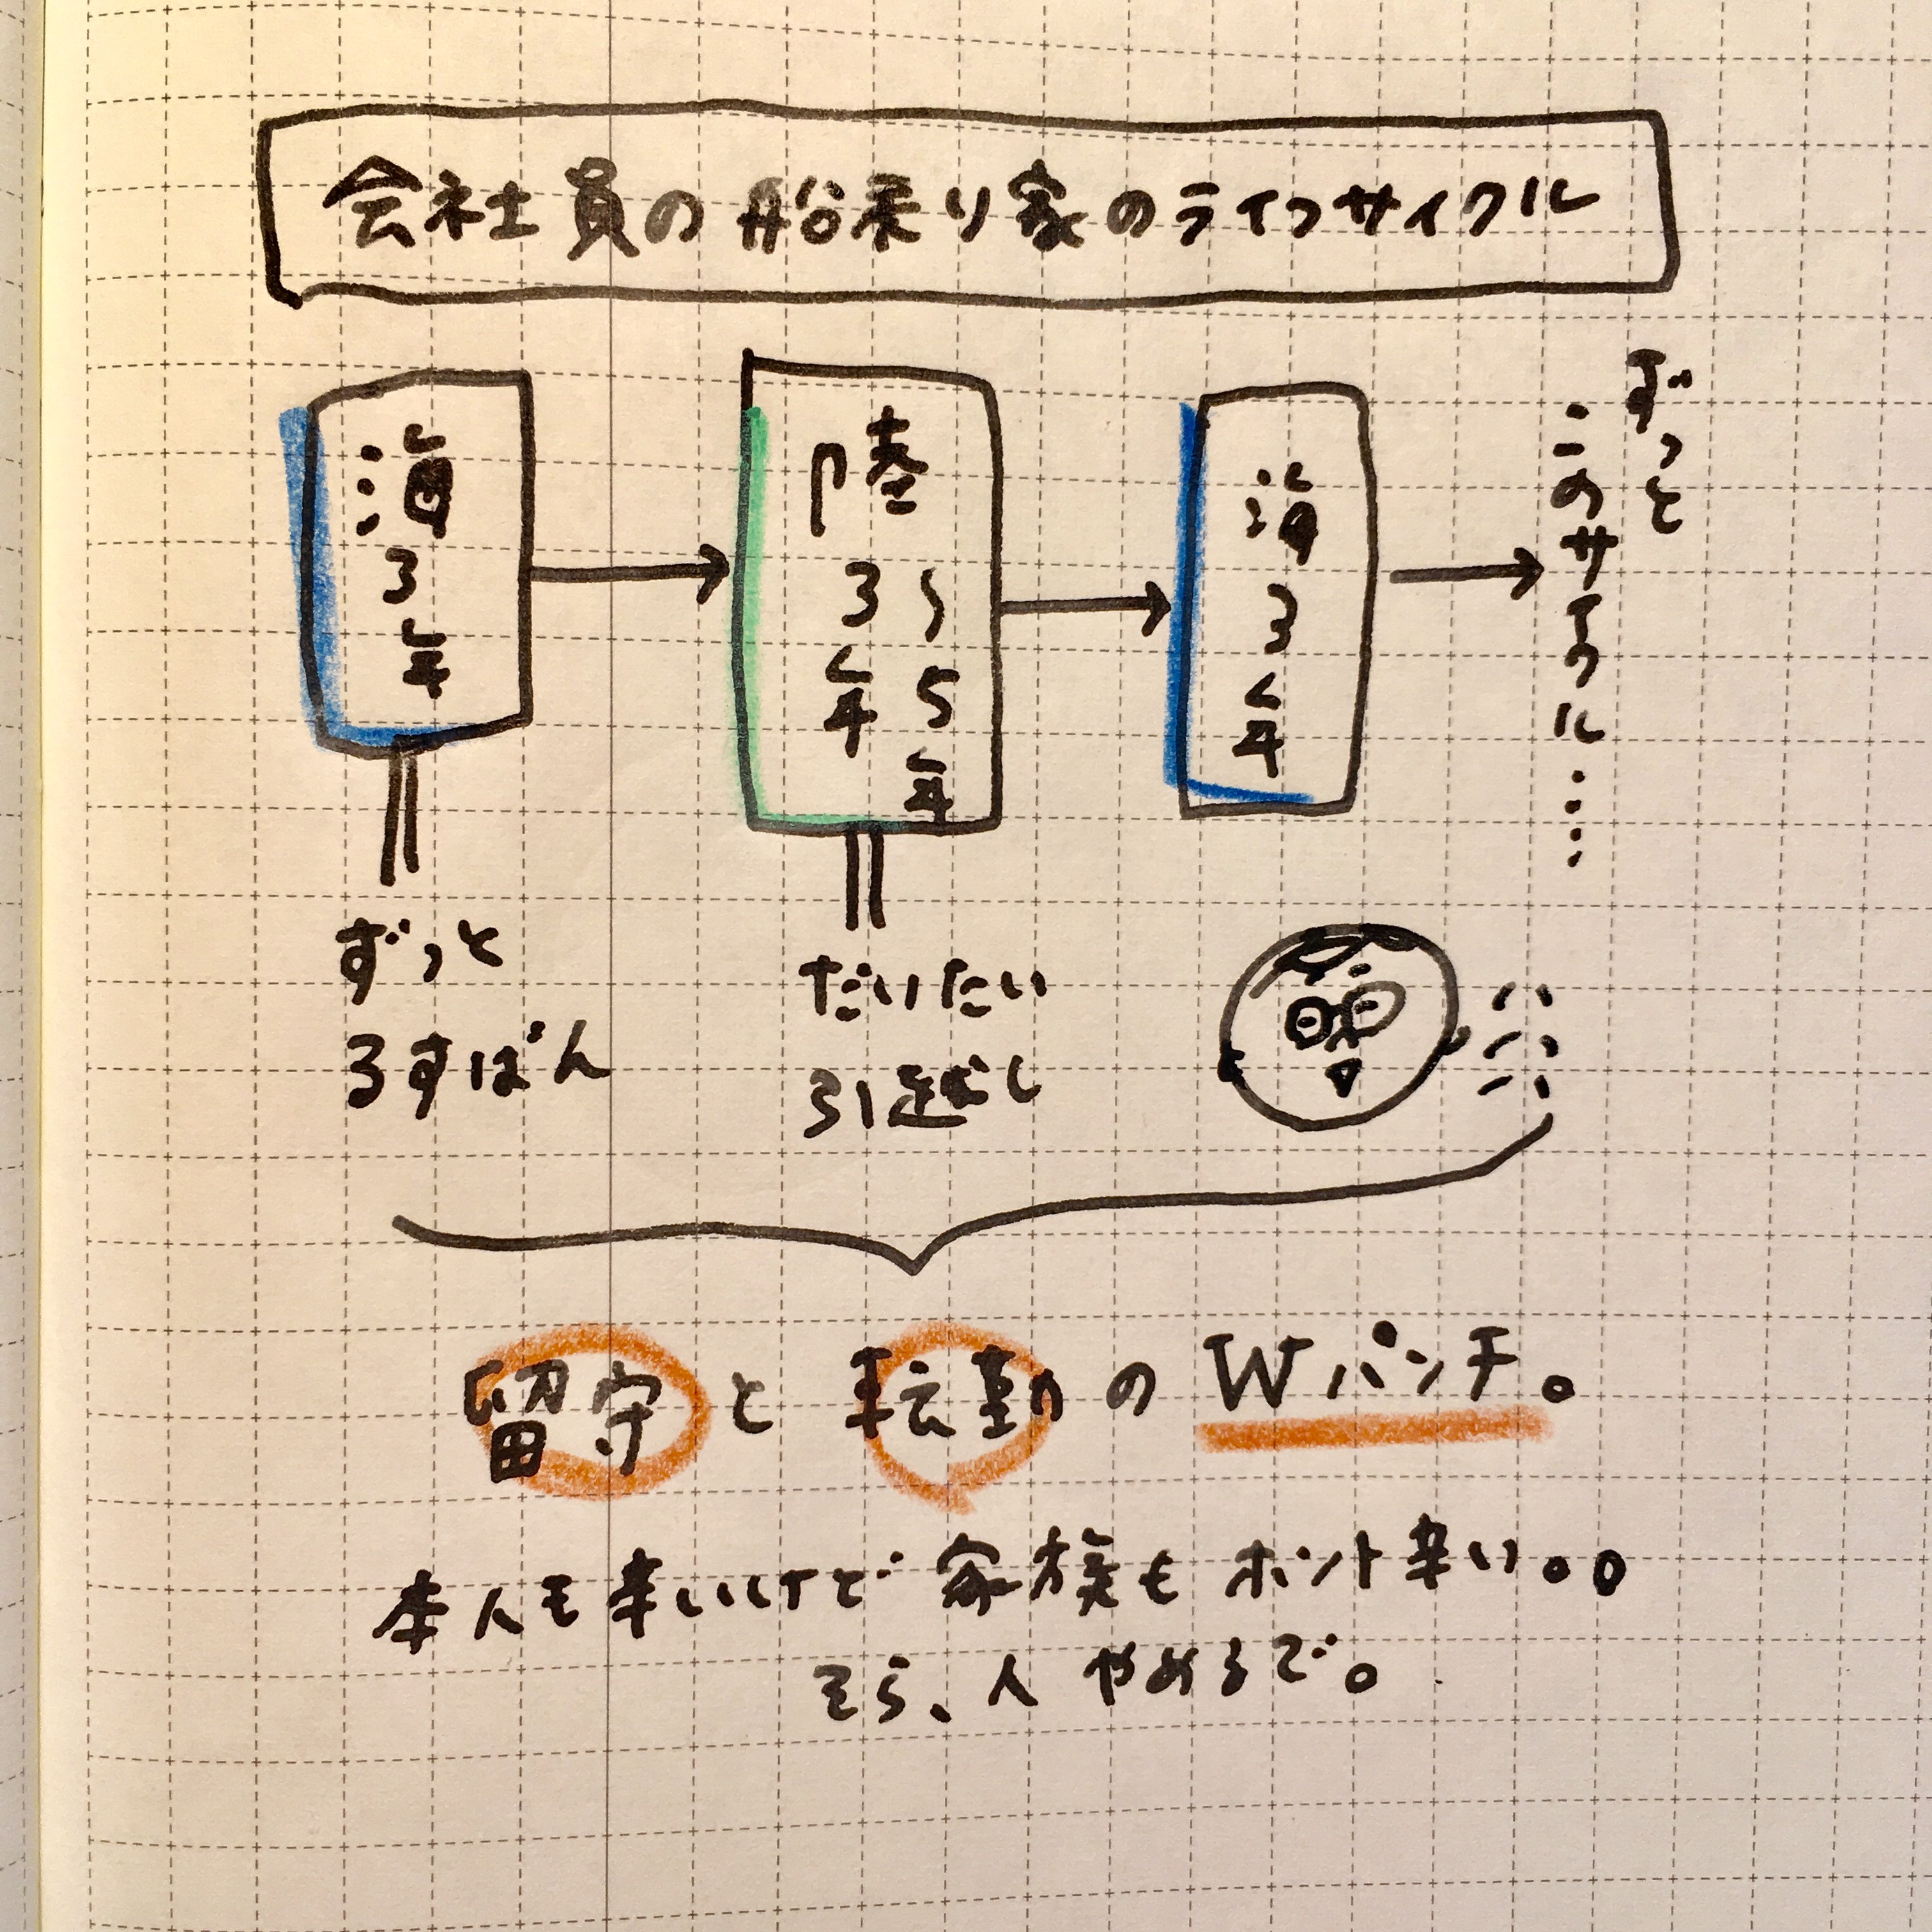 会社員の船乗り家のライフサイクル
海3年
陸3年
〜5年
海3年
ずっと
このサイクル…
ずっと
るすばん
だいたい
引越し
留守と転勤のWパンチ。
本人も辛いけど家族もホント辛い。。
そら、人やめるで。